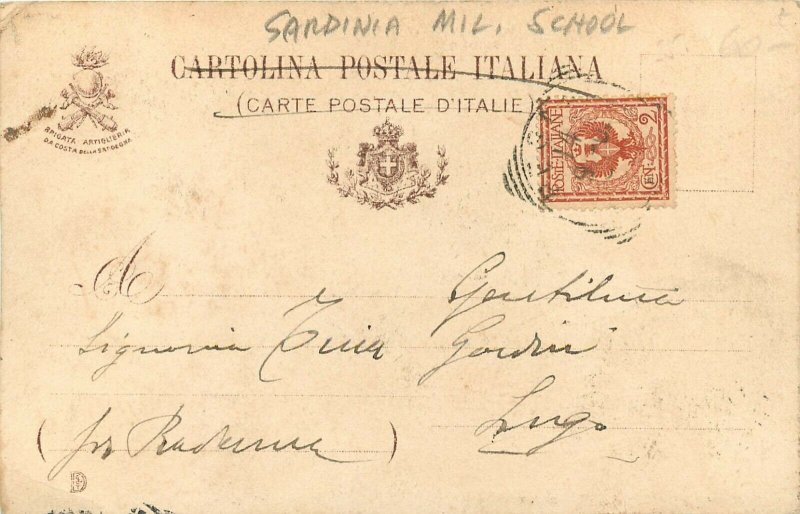 SARDINIA MIL. SCHOOL
60-
CARTOLINA POSTALE ITALIANA
(CARTE POSTALE D'ITALIE)
BRIGATA ARTIGLIERIA
DA COSTA DELLA SARDEGNA
POSTE · ITALIANE
CENT. 2
A Gentilma
Signorina Gordini
Lugo
(per Ravenna)
D